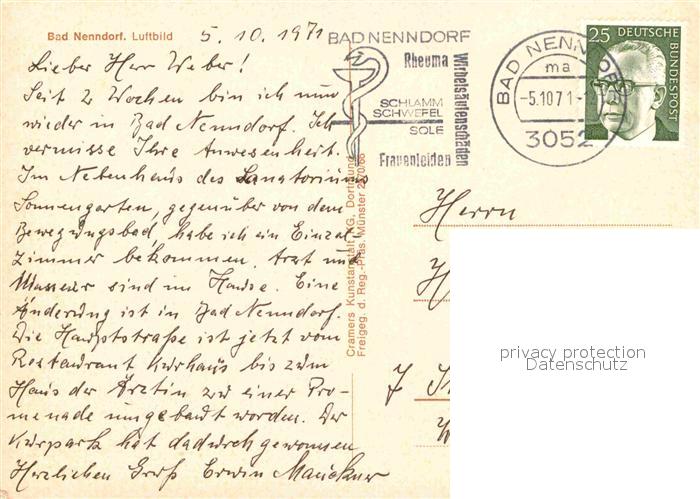 Bad Nenndorf. Luftbild
5.10.1971
Lieber Herr Weber!
Seit 2 Wochen bin ich nun
wieder in Bad Nenndorf. Ich
vermisse Ihre Anwesenheit.
Im Nebenhaus des Sanatoriums
Sonnengarten, gegenüber von dem
Bewegungsbad, habe ich ein Einzel-
zimmer bekommen. Arzt und
Masseur sind im Hause. Eine
Änderung ist in Bad Nenndorf.
Die Hauptstraße ist jetzt vom
Restaurant Kurhaus bis zum
Haus der Ärztin zu einer Pro-
menade umgebaut worden. Der
Kurpark hat dadurch gewonnen
Herzlichen Gruß Erwin
Cramers Kunstanstalt KG, Dortmund
Freigeg. d. Reg.-Präs. Münster
BAD NENNDORF
Rheuma
Wirbelsäulenschäden
SCHLAMM
SCHWEFEL
SOLE
Frauenleiden
BAD NENNDORF
ma
-5.10.71-
3052
25 DEUTSCHE
BUNDESPOST
Herrn
privacy protection
Datenschutz